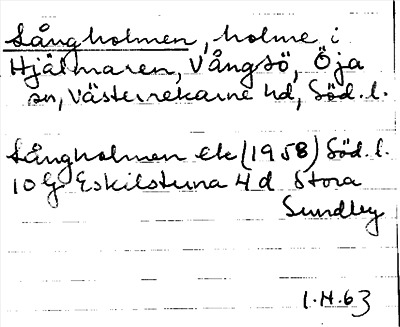 Långholmen, holme i
Hjälmaren, Vångsö, Öja
sn, Västerrekarne hd, Söd. l.
Långholmen ek (1958) Söd. l.
10G Eskilstuna 4d Stora
Sundby
1.H.63